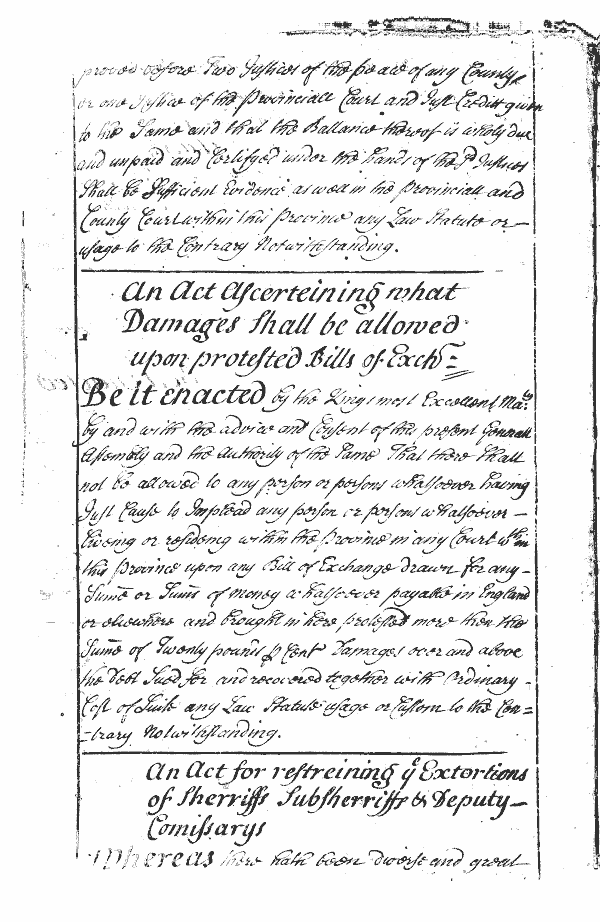 proved before Two Justices of the peace of any County
or one Justice of the Provinciall Court and Just Creditt given
to the Same and that the Ballance thereof is wholy due
and unpaid and Certifyed under the hands of the sd Justices
Shall be Sufficient Evidence as well in the Provinciall and
County Court within this Province any Law Statute or—
usage to the Contrary Notwithstanding.
An Act Ascerteining what
Damages Shall be allowed
upon protested Bills of Exch:=
Be it enacted by the Kings most Excellent Ma:ty
by and with the advice and Consent of this present Generall
Assembly and the Authority of the Same That there Shall
not be allowed to any person or persons whatsoever having
Just Cause to Implead any person or persons whatsoever—
Liveing or resideing within the Province in any Court wthin
this Province upon any Bill of Exchange drawn for any-
Sume or Sums of money whatsoever payable in England
or elsewhere and brought in here protested more then the
Sume of Twenty pounds p Cent Damages over and above
the Debt Sued for and recovered together with Ordinary-
Cost of Suite any Law Statute usage or Custom to the Con=
-trary Notwithstanding.
An Act for restreining ye Extortions
of Sherriffs SubSherriffs & Deputy—
Comissarys
Whereas there hath been diverse and great